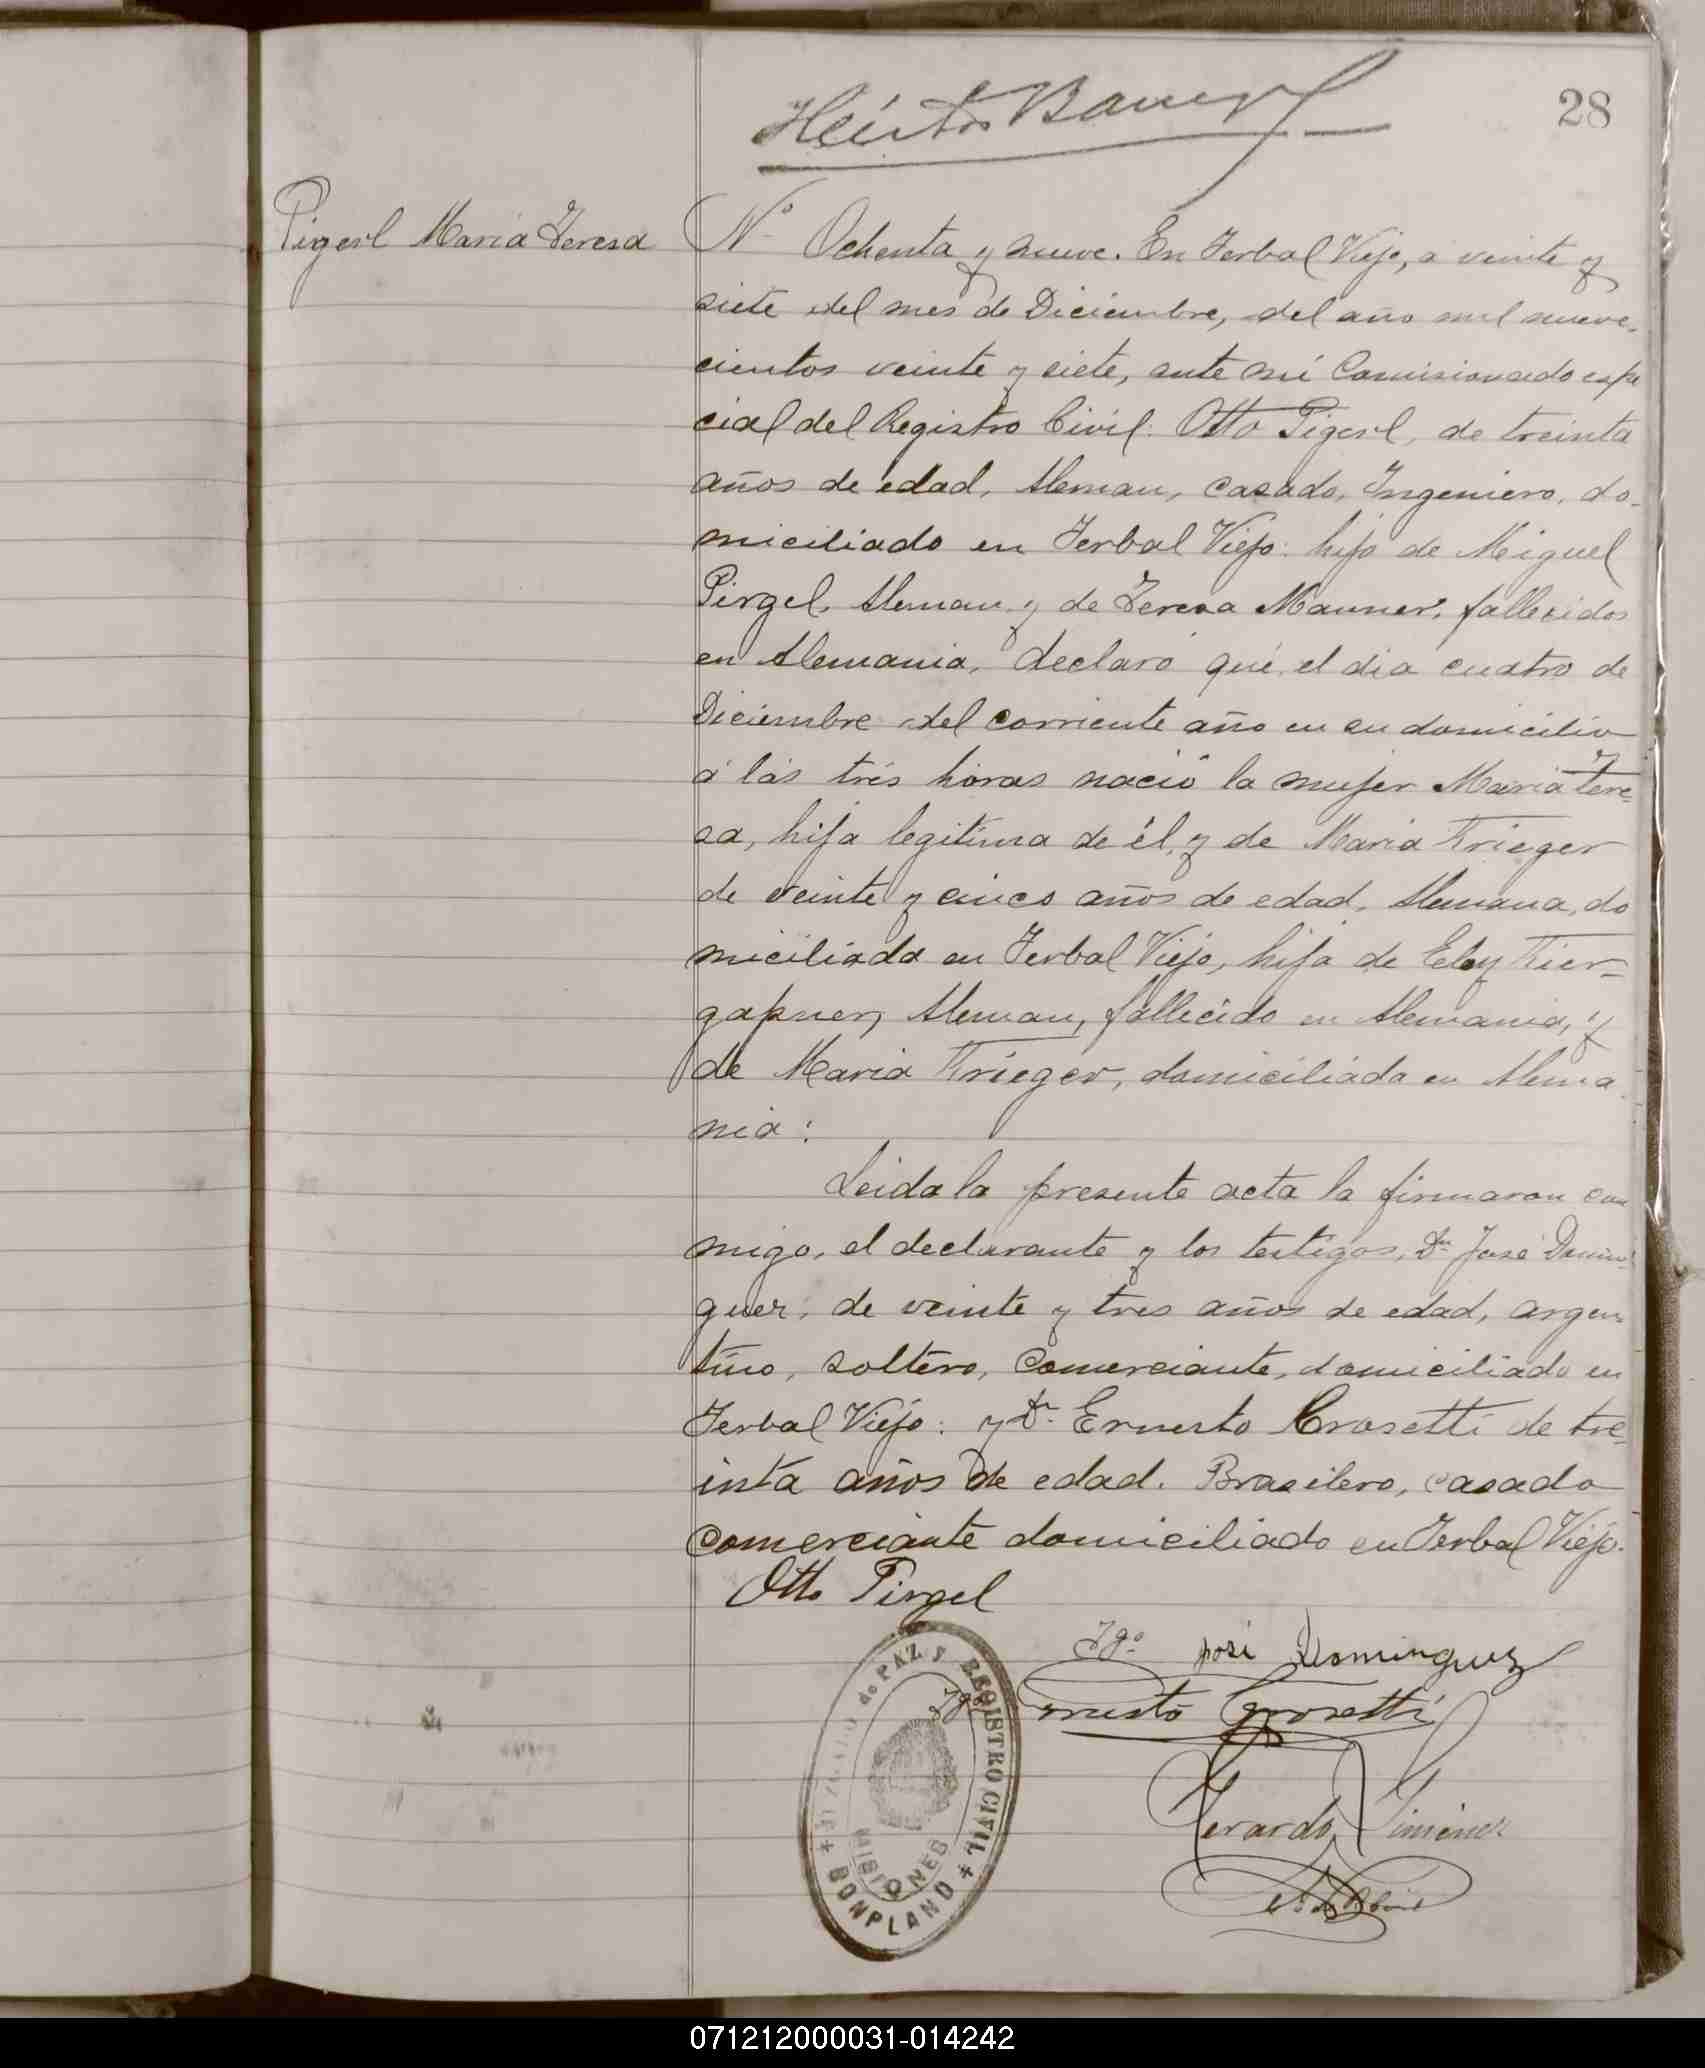 28
Pigerl María Teresa
Nº Ochenta y nueve. En Yerbal Viejo, a veinte y
siete del mes de Diciembre, del año mil nueve-
cientos veinte y siete, ante mí Comisionado espe
cial del Registro Civil: Otto Pigerl, de treinta
años de edad, Aleman, casado, Ingeniero, do-
miciliado en Yerbal Viejo: hijo de Miguel
Pirgel, Aleman y de Teresa Mauner, fallecidos
en Alemania, declaró qué, el dia cuatro de
Diciembre del corriente año en su domicilio
á lás trés horas nació la mujer María Tere-
sa, hija legítima de él, y de María Krieger
de veinte y cinco años de edad, Alemana, do
miciliada en Yerbal Viejo, hija de Eloy Kier-
gapner, Aleman, fallecido en Alemania, y
de María Krieger, domiciliada en Alema
nia:
Leida la presente acta la firmaron con
migo, el declarante y los testigos, Dn José Domin-
guez, de veinte y tres años de edad, argen
tino, soltero, comerciante, domiciliado en
Yerbal Viejo: y Dn Ernesto Crosetti de tre-
inta años de edad. Brasilero, casado
comerciante domiciliado en Yerbal Viejo.
Otto Pirgel
Tgo José Dominguez
Tgo Ernesto Crosetti
Gerardo Jimenez
JUZGADO de PAZ y REGISTRO CIVIL
MISIONES
BONPLAND
071212000031-014242